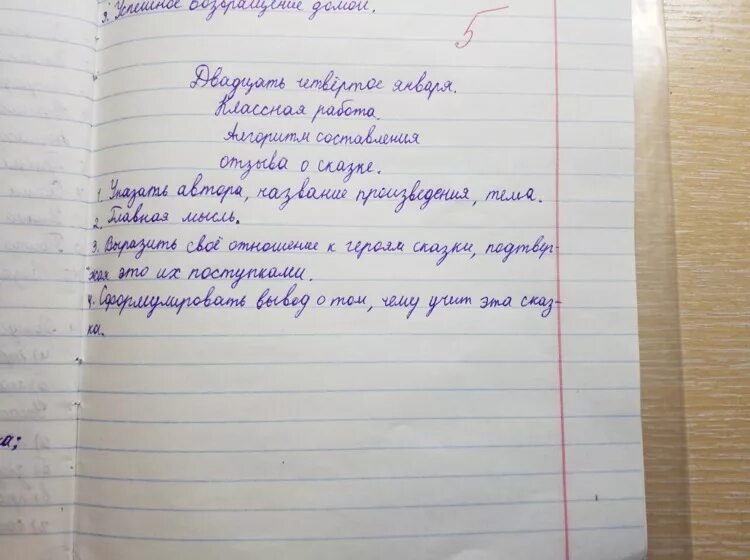 3. Успешное возвращение домой.
5
Двадцать четвёртое января.
Классная работа.
Алгоритм составления
отзыва о сказке.
1. Указать автора, название произведения, тема.
2. Главная мысль.
3. Выразить своё отношение к героям сказки, подтвер-
жая это их поступками.
4. Сформулировать вывод о том, чему учит эта сказ-
ка.
ка;